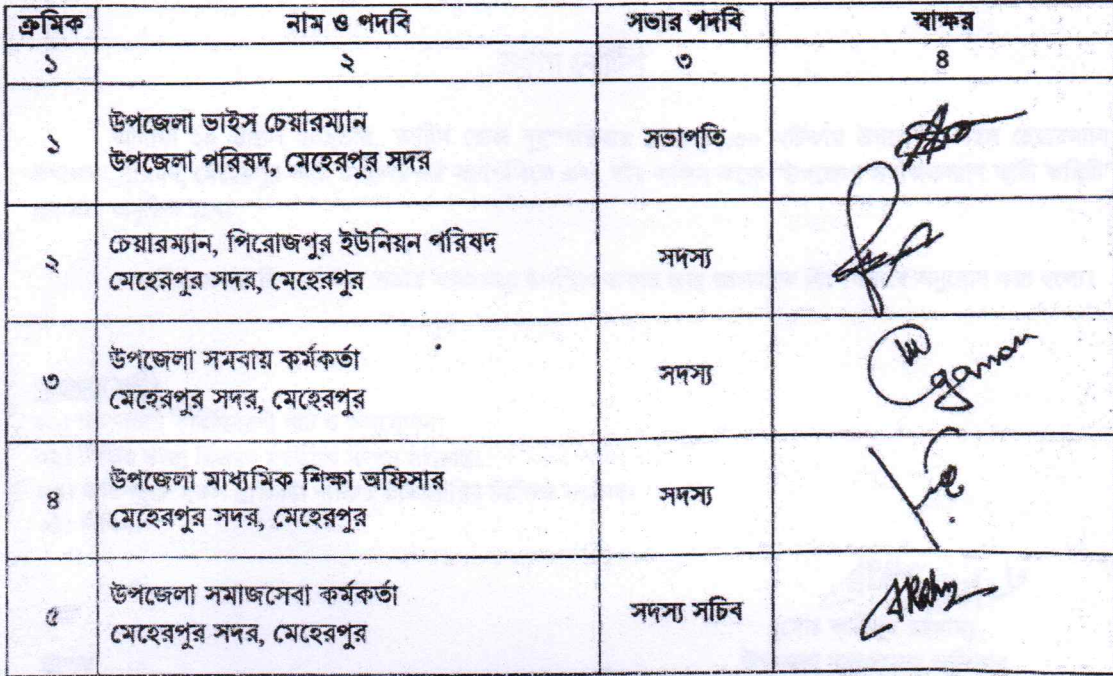 ক্রমিক নাম ও পদবি সভার পদবি স্বাক্ষর
১ ২ ৩ ৪
১ উপজেলা ভাইস চেয়ারম্যান
উপজেলা পরিষদ, মেহেরপুর সদর সভাপতি
২ চেয়ারম্যান, পিরোজপুর ইউনিয়ন পরিষদ
মেহেরপুর সদর, মেহেরপুর সদস্য
৩ উপজেলা সমবায় কর্মকর্তা
মেহেরপুর সদর, মেহেরপুর সদস্য
৪ উপজেলা মাধ্যমিক শিক্ষা অফিসার
মেহেরপুর সদর, মেহেরপুর সদস্য
৫ উপজেলা সমাজসেবা কর্মকর্তা
মেহেরপুর সদর, মেহেরপুর সদস্য সচিব